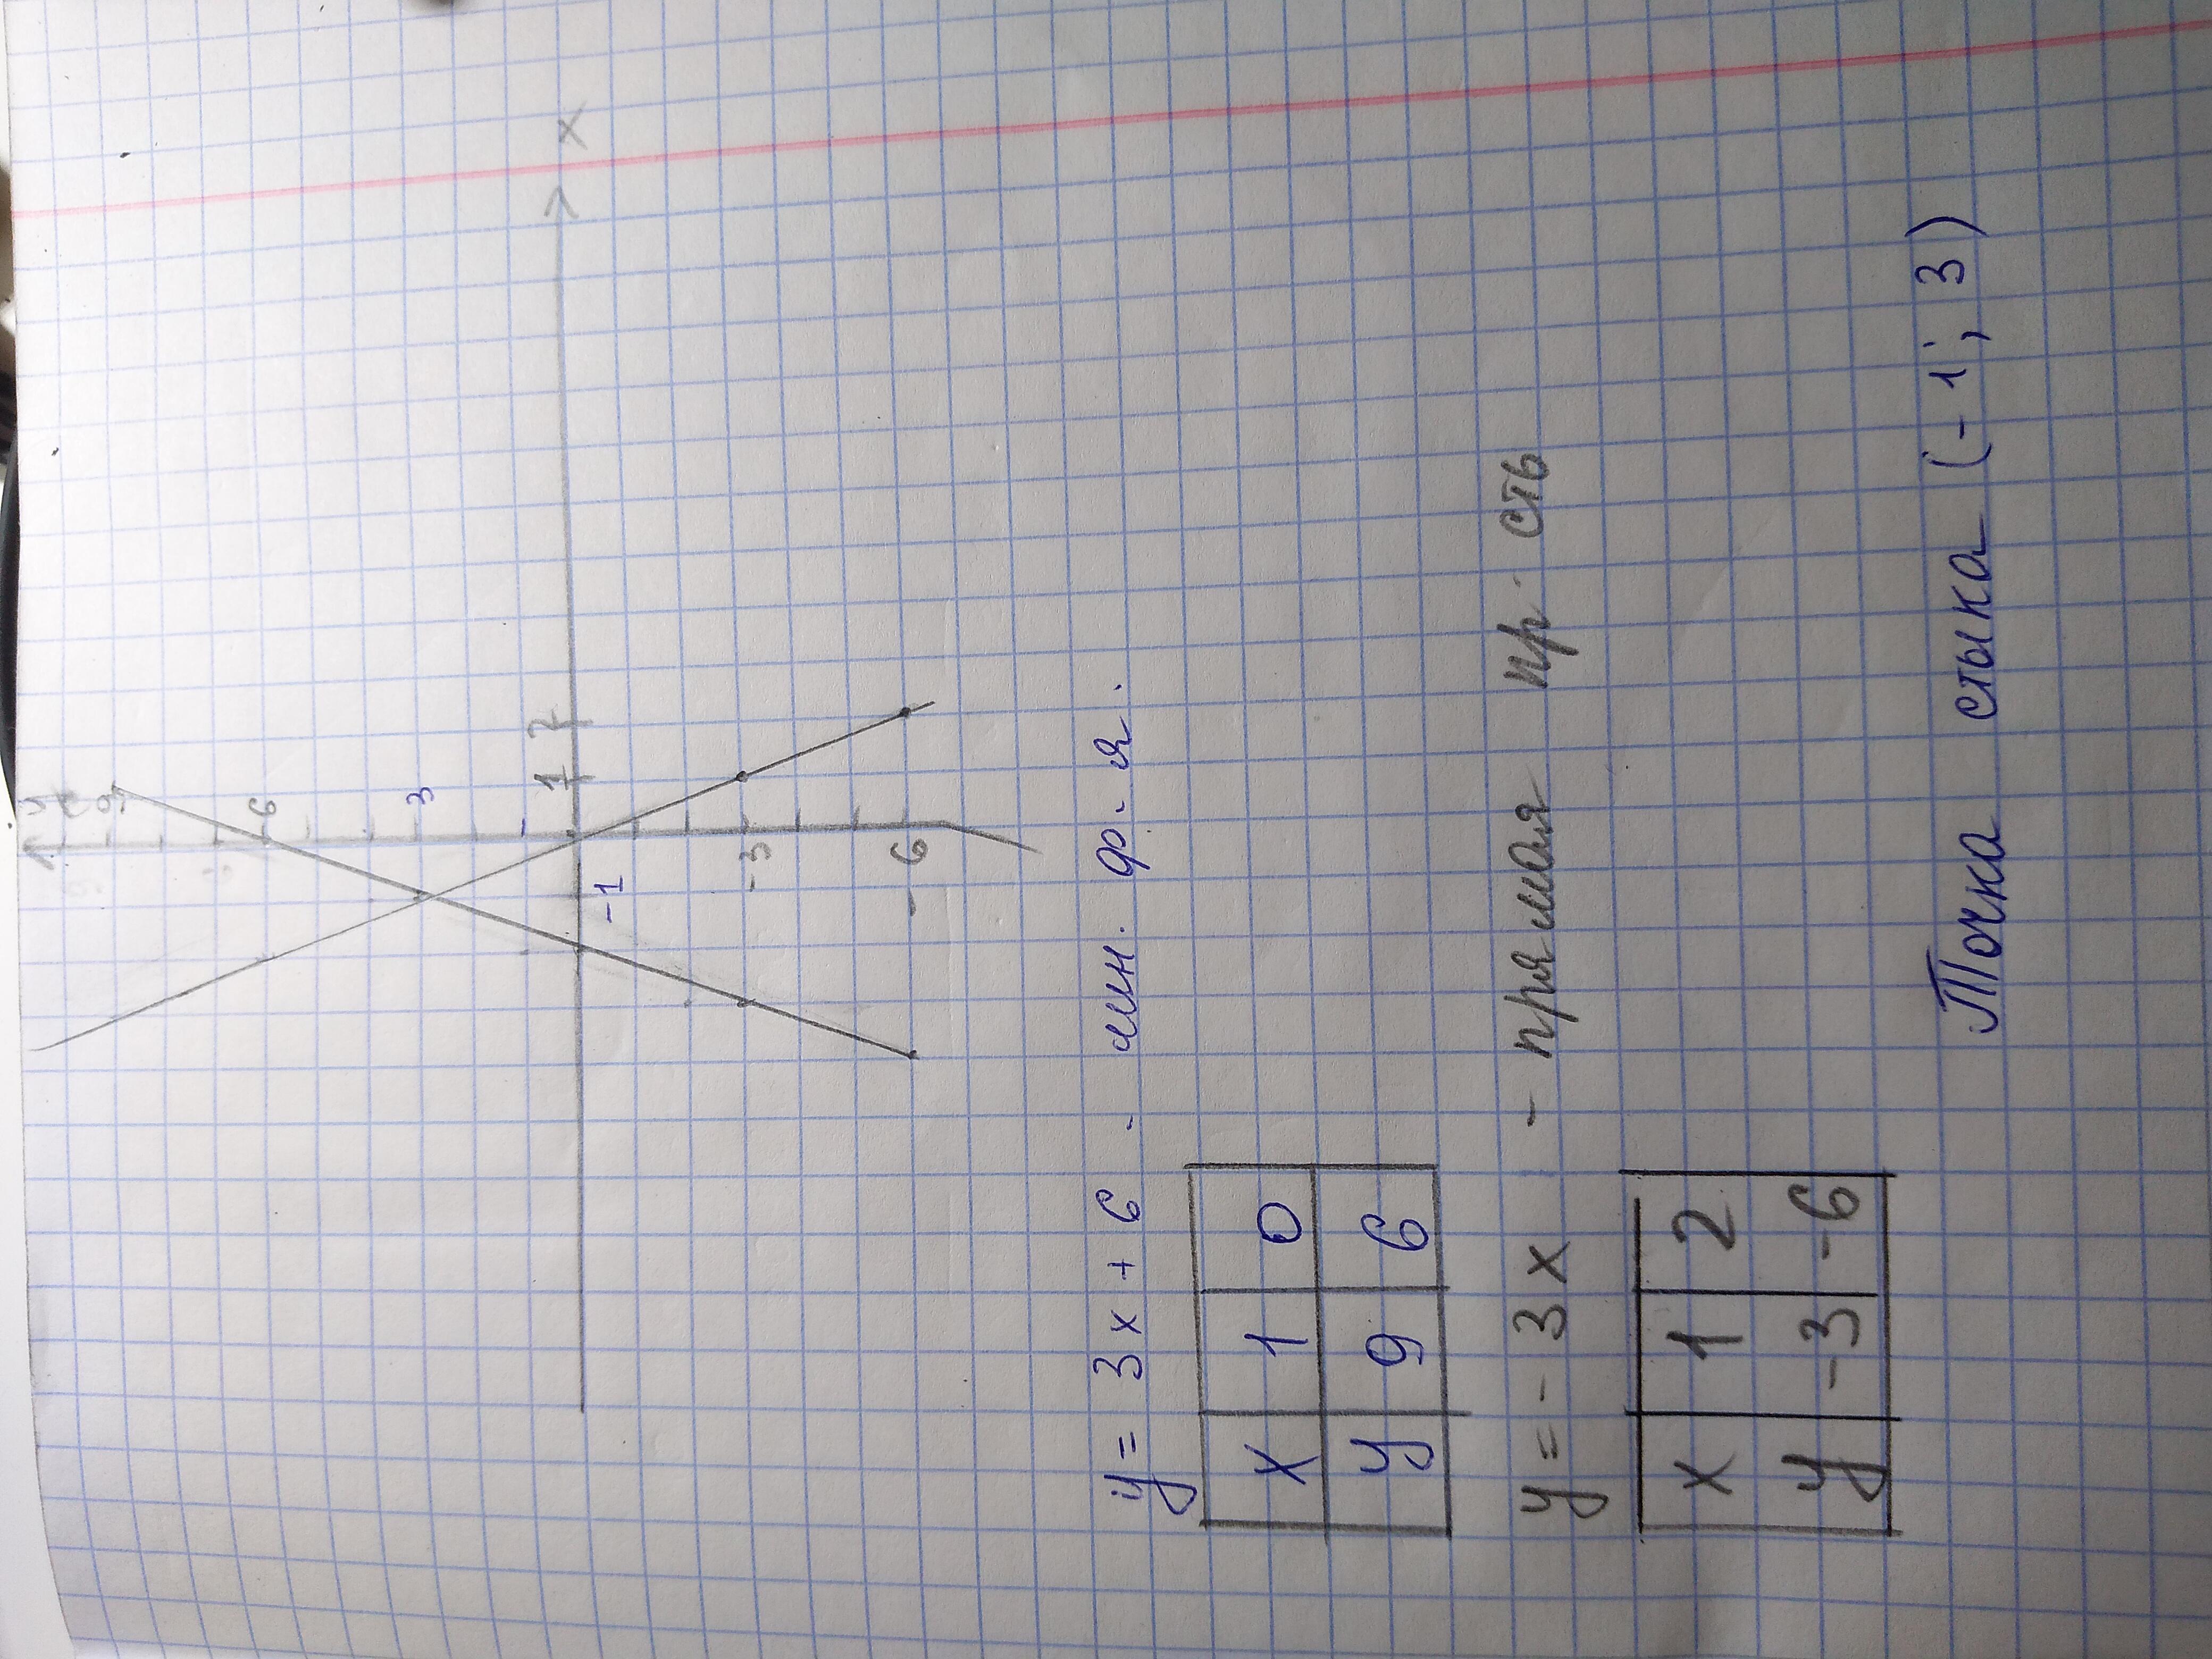 y
9
6
3
1 2 x
-1
-3
-6
y = 3x + 6 - лин. ф-я.
x 1 0
y 9 6
y = -3x - прямая пр-сть
x 1 2
y -3 -6
Точка стыка (-1; 3)